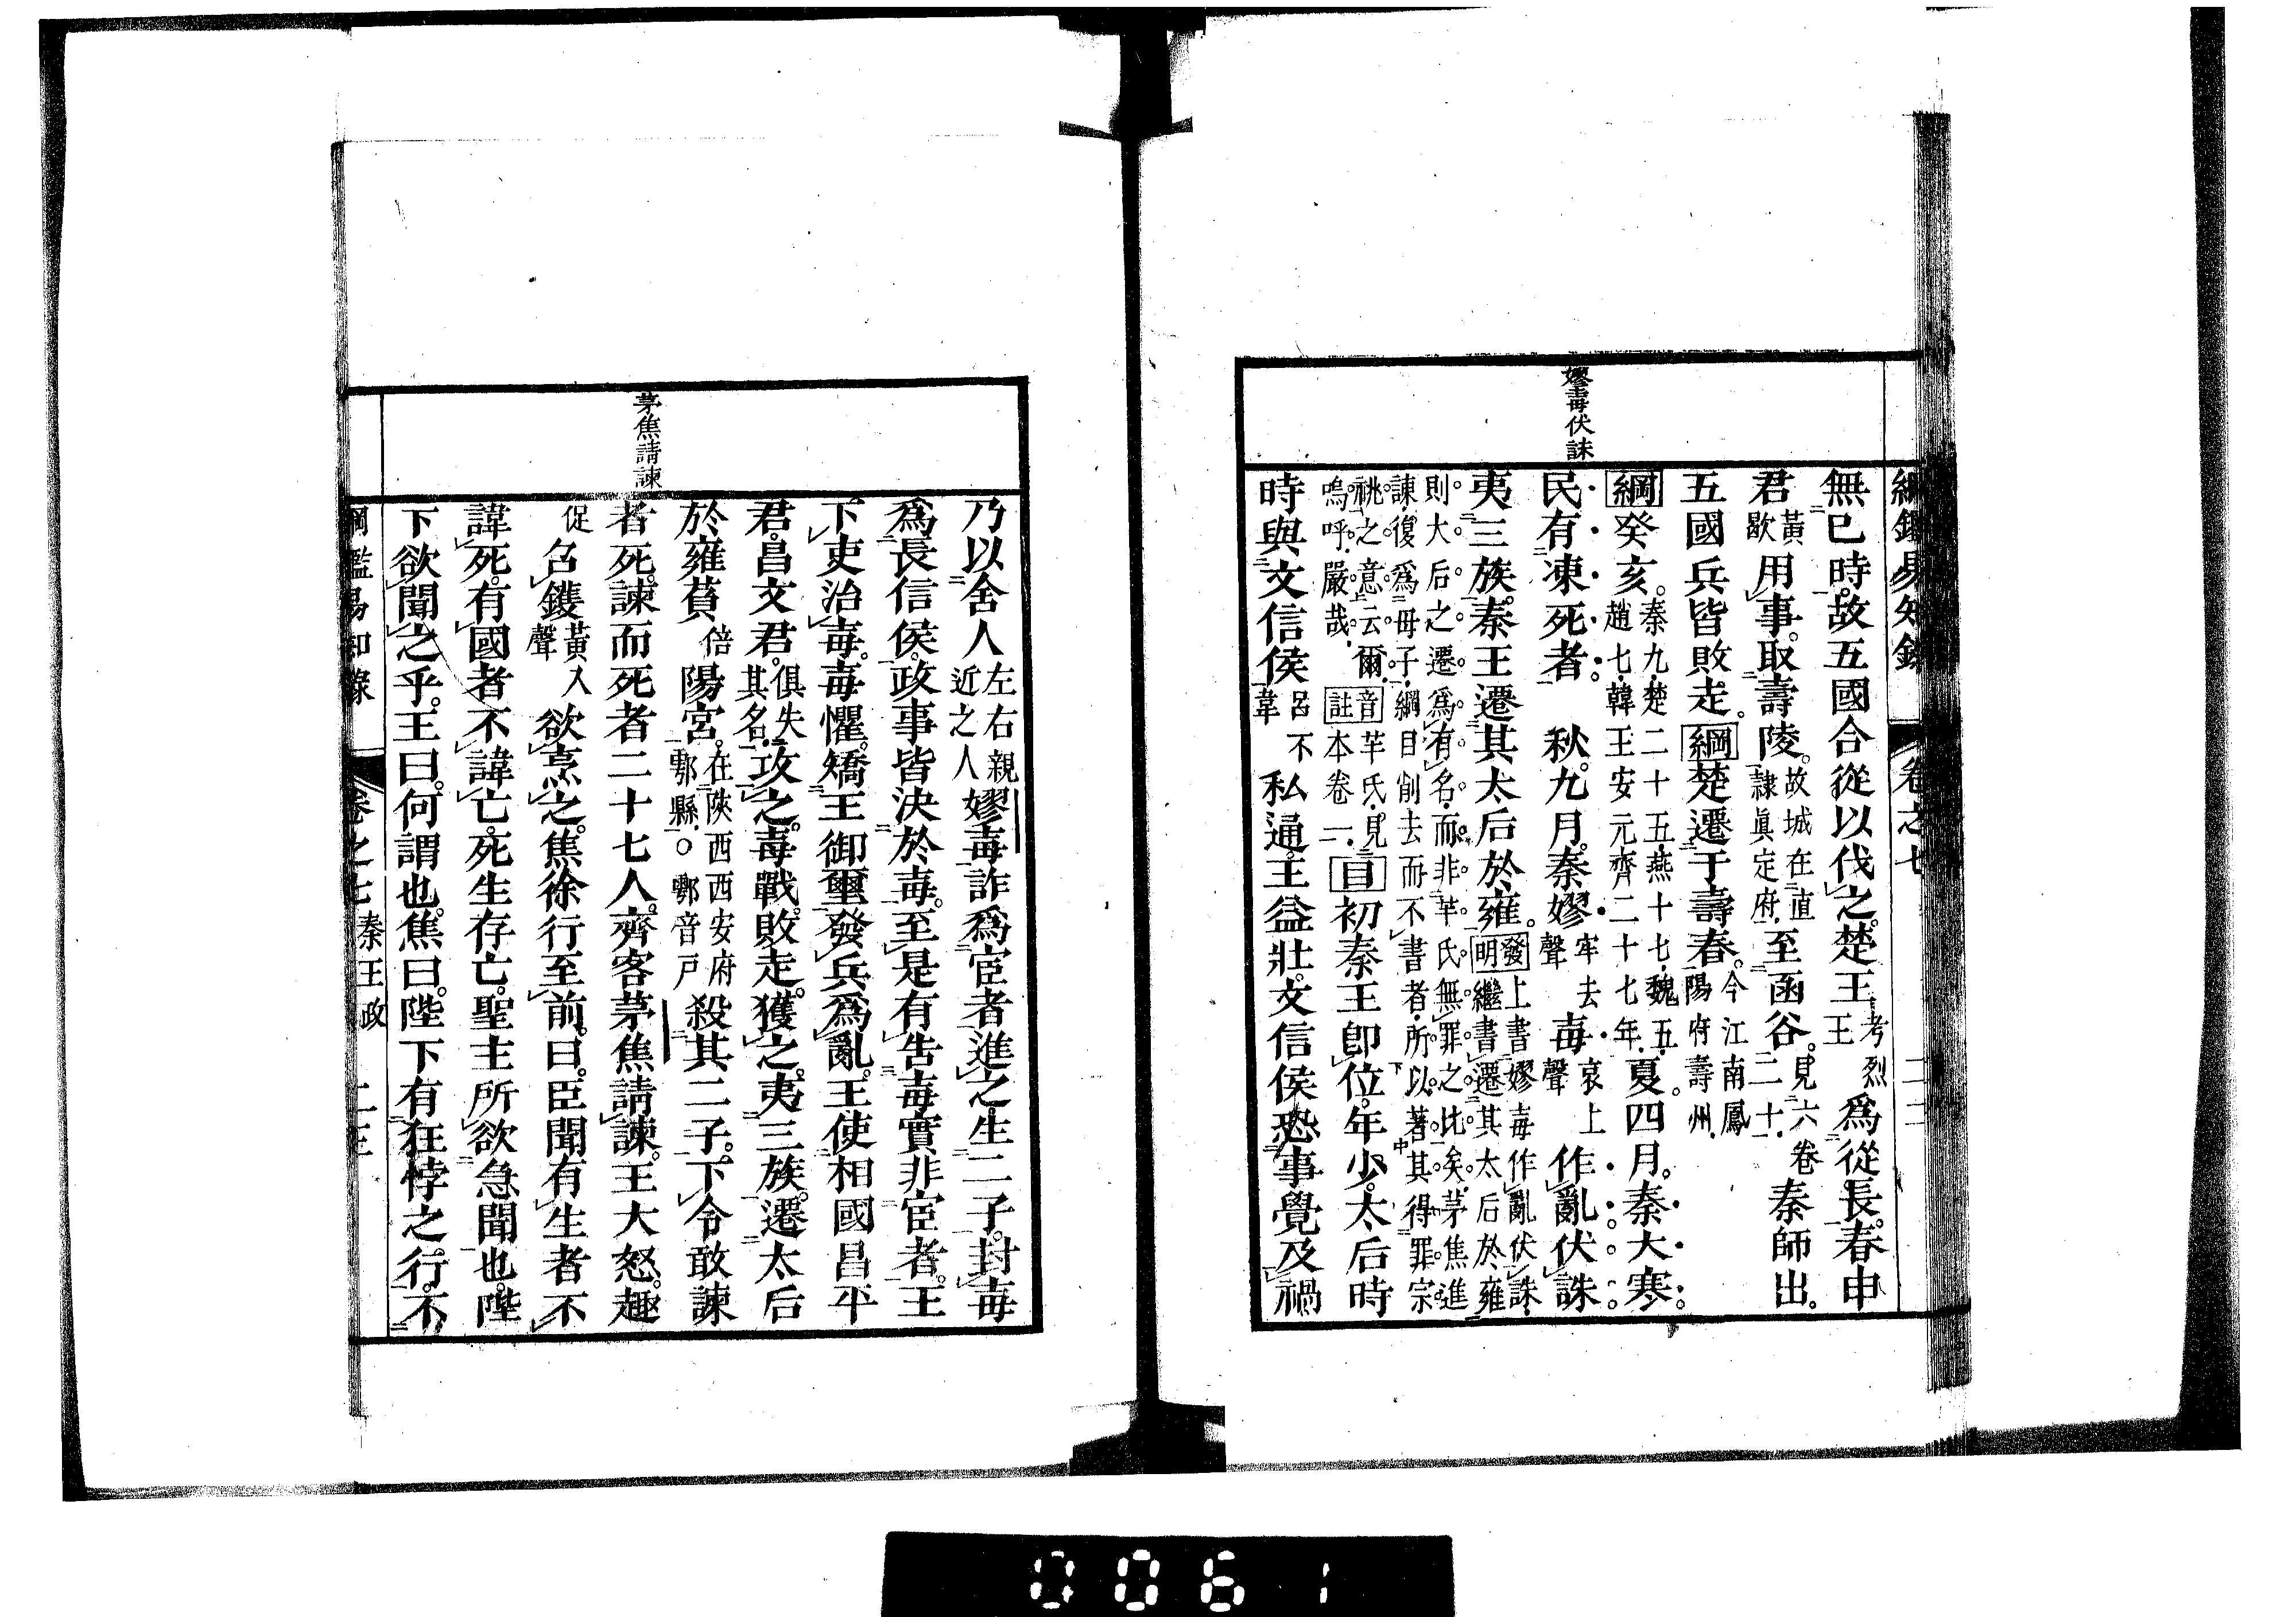 綱鑑易知錄 卷之七 二二
嫪毐伏誅
無已時。故五國合從以伐之。楚王考烈王爲從長。春申
君黃歇用事。取壽陵。故城在直隸眞定府。至函谷。見六卷二十。秦師出。
五國兵皆敗走。綱楚遷于壽春。今江南鳳陽府壽州。
綱癸亥。秦九。楚二十五。燕十七。魏五。趙七。韓王安元。齊二十七年。夏。四月。秦大寒。
民有凍死者。秋。九月。秦嫪牢去聲毐哀上聲作亂伏誅
夷三族。秦王遷其太后於雍。發明上書嫪毐作亂伏誅。繼書遷其太后於雍
則大后之遷。爲有名。而非羋氏無罪之比矣。茅焦進
諫。復爲母子。綱目削去而不書者。所以著其得罪宗
祧之意云爾。
嗚呼。嚴哉。音註羋氏。見本卷一。目初秦王卽位。年少。太后時
時與文信侯呂不韋私通。王益壯。文信侯恐事覺及禍
茅焦請諫
乃以舍人左右親近之人嫪毐詐爲宦者進之。生二子。封毐
爲長信侯。政事皆決於毐。至是有告毐實非宦者。王
下吏治毐。毐懼。矯王御璽發兵爲亂。王使相國昌平
君。昌文君。俱失其名。攻之。毐戰敗走。獲之。夷三族。遷太后
於雍萯倍陽宮。在陝西西安府鄠縣。○鄠音戶殺其二子。下令敢諫
者死。諫而死者二十七人。齊客茅焦請諫。王大怒。趣
促召鑊黃入聲欲烹之。焦徐行至前。曰。臣聞有生者不
諱死。有國者不諱亡。死生存亡。聖主所欲急聞也。陛
下欲聞之乎。王曰。何謂也。焦曰。陛下有狂悖之行。不
綱鑑易知錄 卷之七 秦王政 二三
0061